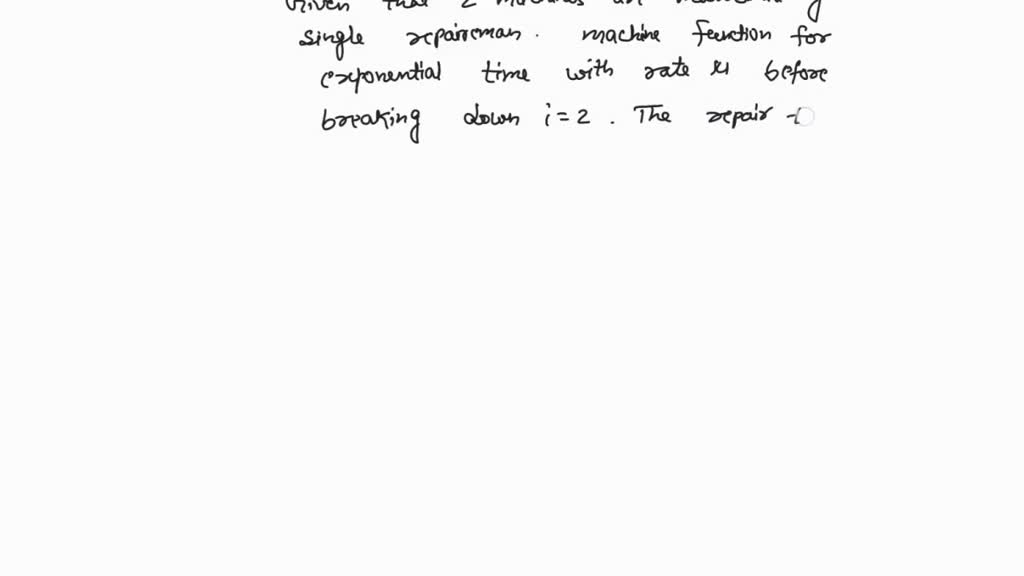 Given that 2 machines are
single repairman. machine function for
exponential time with rate μ before
breaking down i = 2. The repair